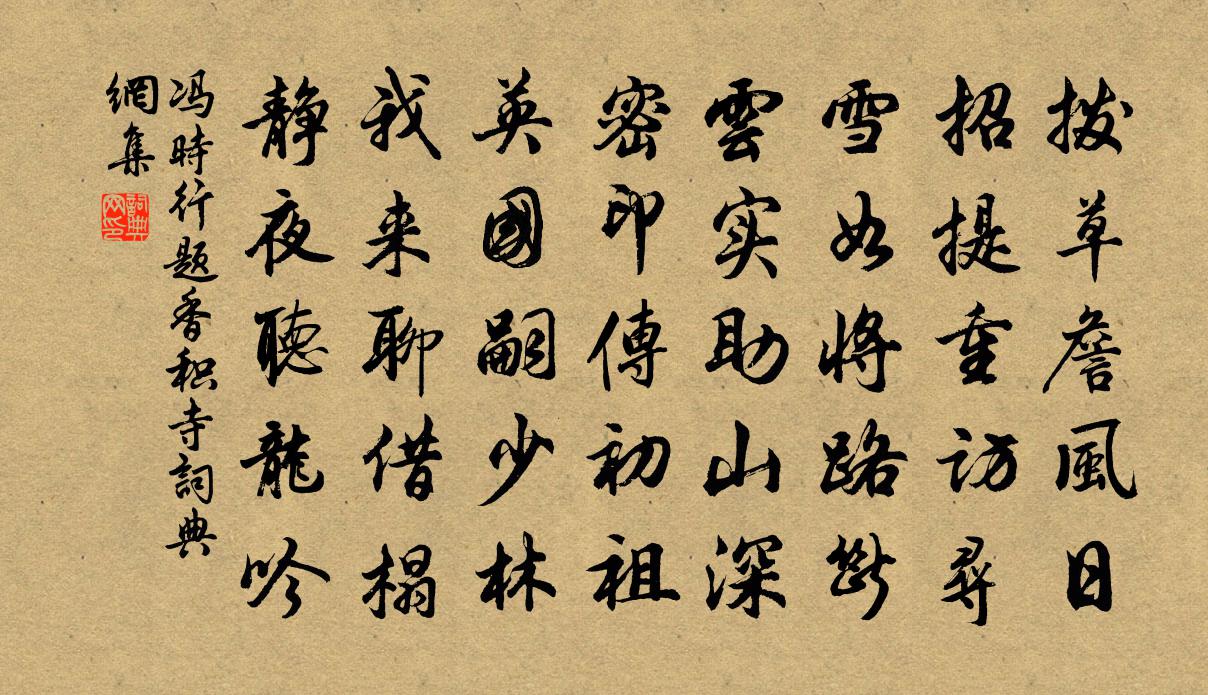 拨草詹風日
招提重访尋
雪如将路斷
雲实助山深
密印傳初祖
英國嗣少林
我来聊借榻
静夜聽龍吟
冯時行題香积寺詞典
網集
詞典
网印